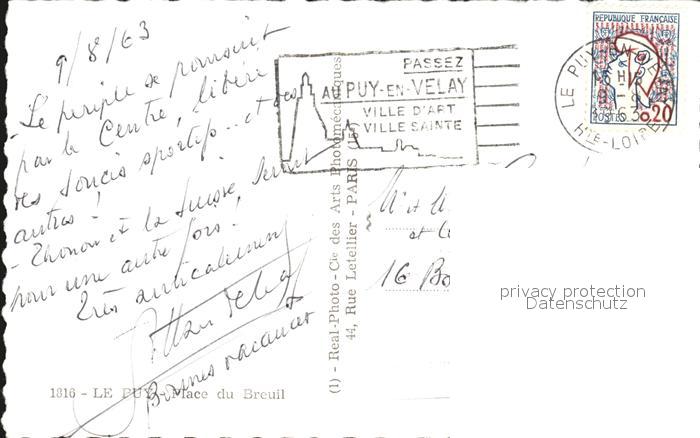 9/8/63
- Le périple se poursuit
par le Centre, libéré
des soucis sportifs... et des
autres !
- Thonon et la Suisse seront
pour une autre fois !
Très amicalement
Bonnes vacances
1816 - LE PUY - Place du Breuil
(1) - Real-Photo - Cie des Arts Photomécaniques
44, Rue Letellier - PARIS (15e)
PASSEZ
AU PUY-EN-VELAY
VILLE D'ART
VILLE SAINTE
REPUBLIQUE FRANÇAISE
POSTES 0,20
LE PUY
HTE-LOIRE
et
16 Bo
privacy protection
Datenschutz